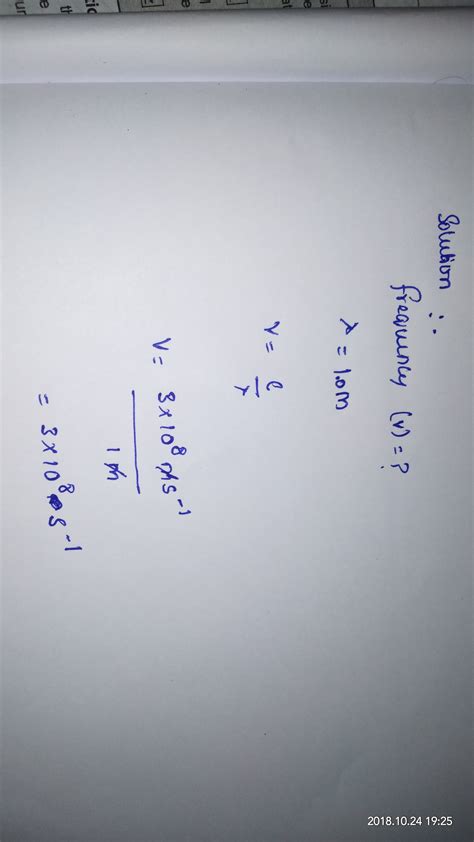 Solution :-
frequency (ν) = ?
λ = 1.0 m
ν = c/λ
ν = 3×10⁸ ms⁻¹
1 m
= 3×10⁸ s⁻¹
2018.10.24 19:25